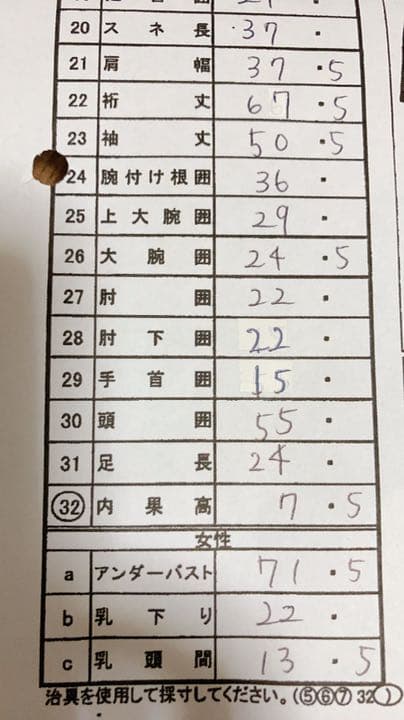 20 スネ長 37 ・
21 肩幅 37 ・5
22 裄丈 67 ・5
23 袖丈 50 ・5
24 腕付け根囲 36 ・
25 上大腕囲 29 ・
26 大腕囲 24 ・5
27 肘囲 22 ・
28 肘下囲 22 ・
29 手首囲 15 ・
30 頭囲 55 ・
31 足長 24 ・
㉜ 内果高 7 ・5
女性
a アンダーバスト 71 ・5
b 乳下り 22 ・
c 乳頭間 13 ・5
治具を使用して採寸してください。(⑤⑥⑦ 32